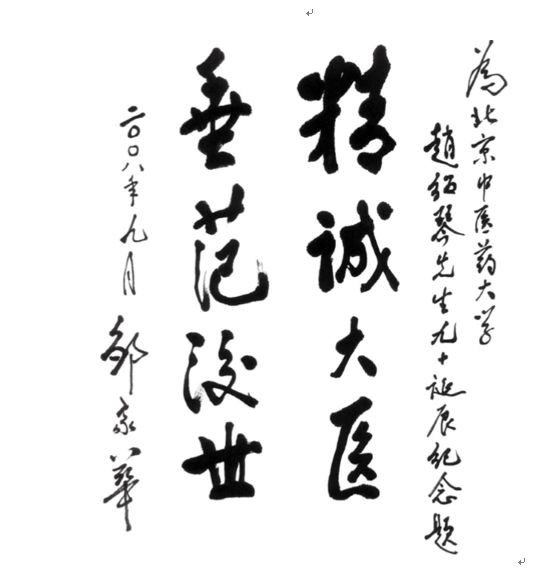 为北京中医药大学
趙绍琴先生九十诞辰纪念题
精诚大医
垂范後世
二〇〇八年九月
邹家华